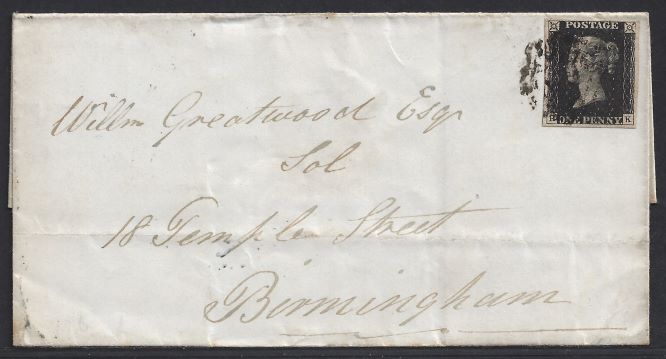 POSTAGE
ONE PENNY
K
Willm Greatwood Esqr
Sol
18 Temple Street
Birmingham